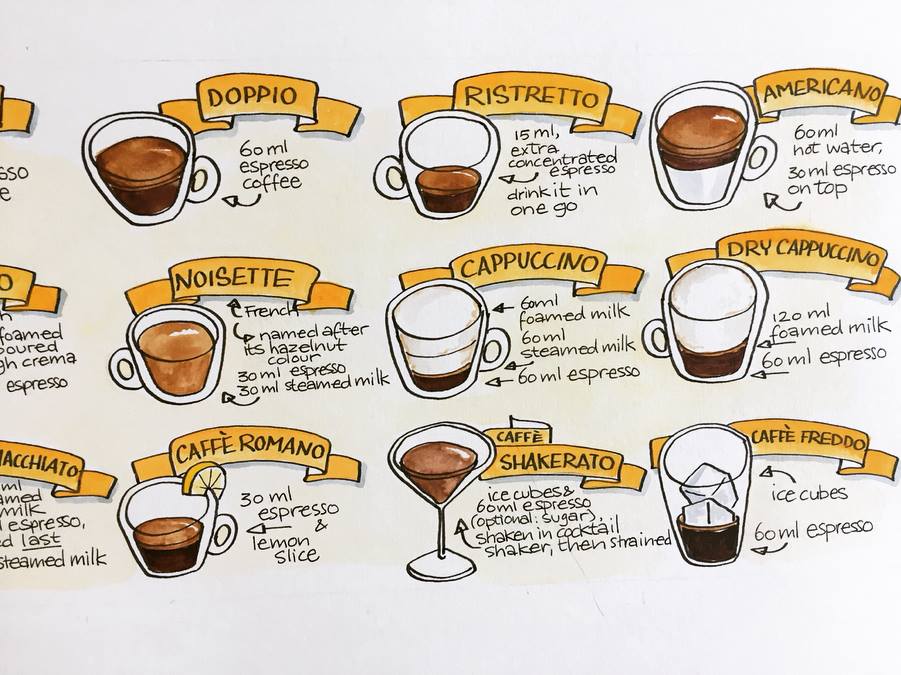 DOPPIO
60ml
espresso
coffee
RISTRETTO
15 ml,
extra
concentrated
espresso
drink it in
one go
AMERICANO
60ml
hot water,
30 ml espresso
on top
NOISETTE
French
named after
its hazelnut
colour
30 ml espresso
30 ml steamed milk
CAPPUCCINO
60ml
foamed milk
60 ml
steamed milk
60 ml espresso
DRY CAPPUCCINO
120 ml
foamed milk
60 ml espresso
foamed
espresso
MACCHIATO
ml
milk
espresso,
last
steamed milk
CAFFÈ ROMANO
30 ml
espresso
&
lemon
slice
CAFFÈ
SHAKERATO
ice cubes &
60 ml espresso
(optional: sugar),
shaken in cocktail
shaker, then strained
CAFFÈ FREDDO
ice cubes
60 ml espresso